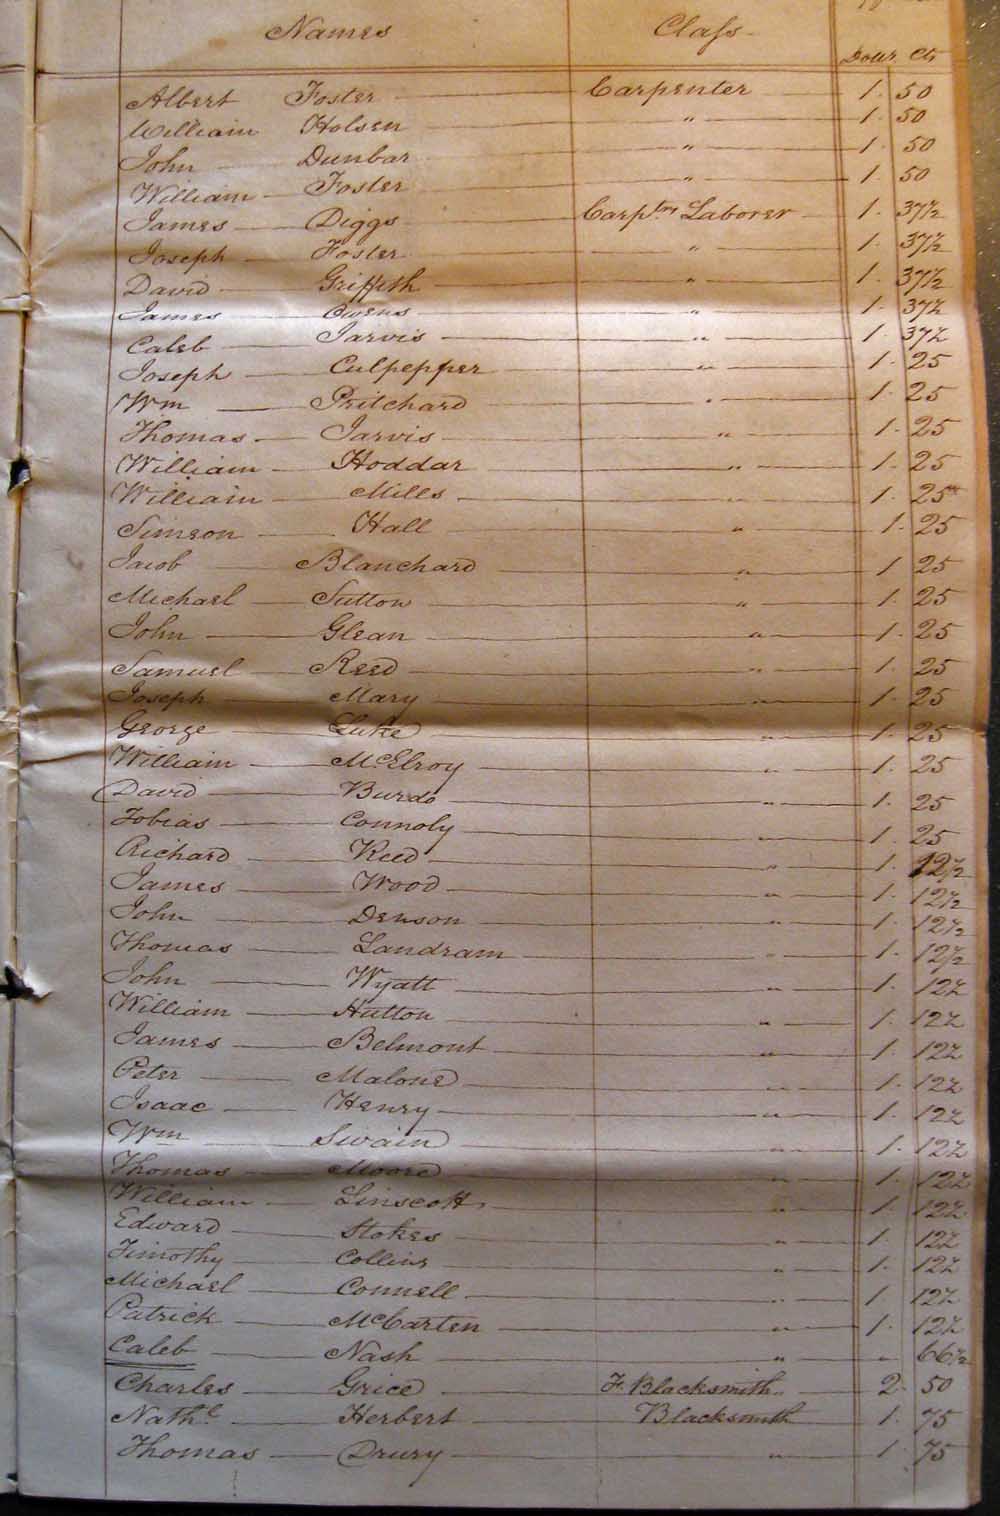 Names Class
Dollr. Cts
Albert Foster Carpenter 1. 50
William Holsen " 1. 50
John Dunbar " 1. 50
William Foster " 1. 50
James Diggs Carptrs Laborer 1. 37½
Joseph Foster " 1. 37½
David Griffith " 1. 37½
James Owens " 1. 37½
Caleb Jarvis " 1. 37½
Joseph Culpepper " 1. 25
Wm Pritchard " 1. 25
Thomas Jarvis " 1. 25
William Hoddar " 1. 25
William Mills " 1. 25
Simeon Hall " 1. 25
Jacob Blanchard " 1 25
Michael Sutton " 1. 25
John Glean " 1. 25
Samuel Reed " 1. 25
Joseph Mary " 1. 25
George Luke " 1. 25
William McElroy " 1. 25
David Burdo " 1. 25
Tobias Connoly " 1. 25
Richard Reed " 1. 12½
James Wood " 1. 12½
John Denson " 1. 12½
Thomas Landram " 1. 12½
John Wyatt " 1. 12½
William Hutton " 1. 12½
James Belmont " 1. 12½
Peter Malone " 1. 12½
Isaac Henry " 1. 12½
Wm Swain " 1. 12½
Thomas Moore " 1. 12½
William Linscott " 1. 12½
Edward Stokes " 1. 12½
Timothy Collins " 1. 12½
Michael Connell " 1 12½
Patrick McCarten " 1. 12½
Caleb Nash " " 66½
Charles Grice F. Blacksmith 2. 50
Nathl Herbert Blacksmith 1. 75
Thomas Drury " 1. 75